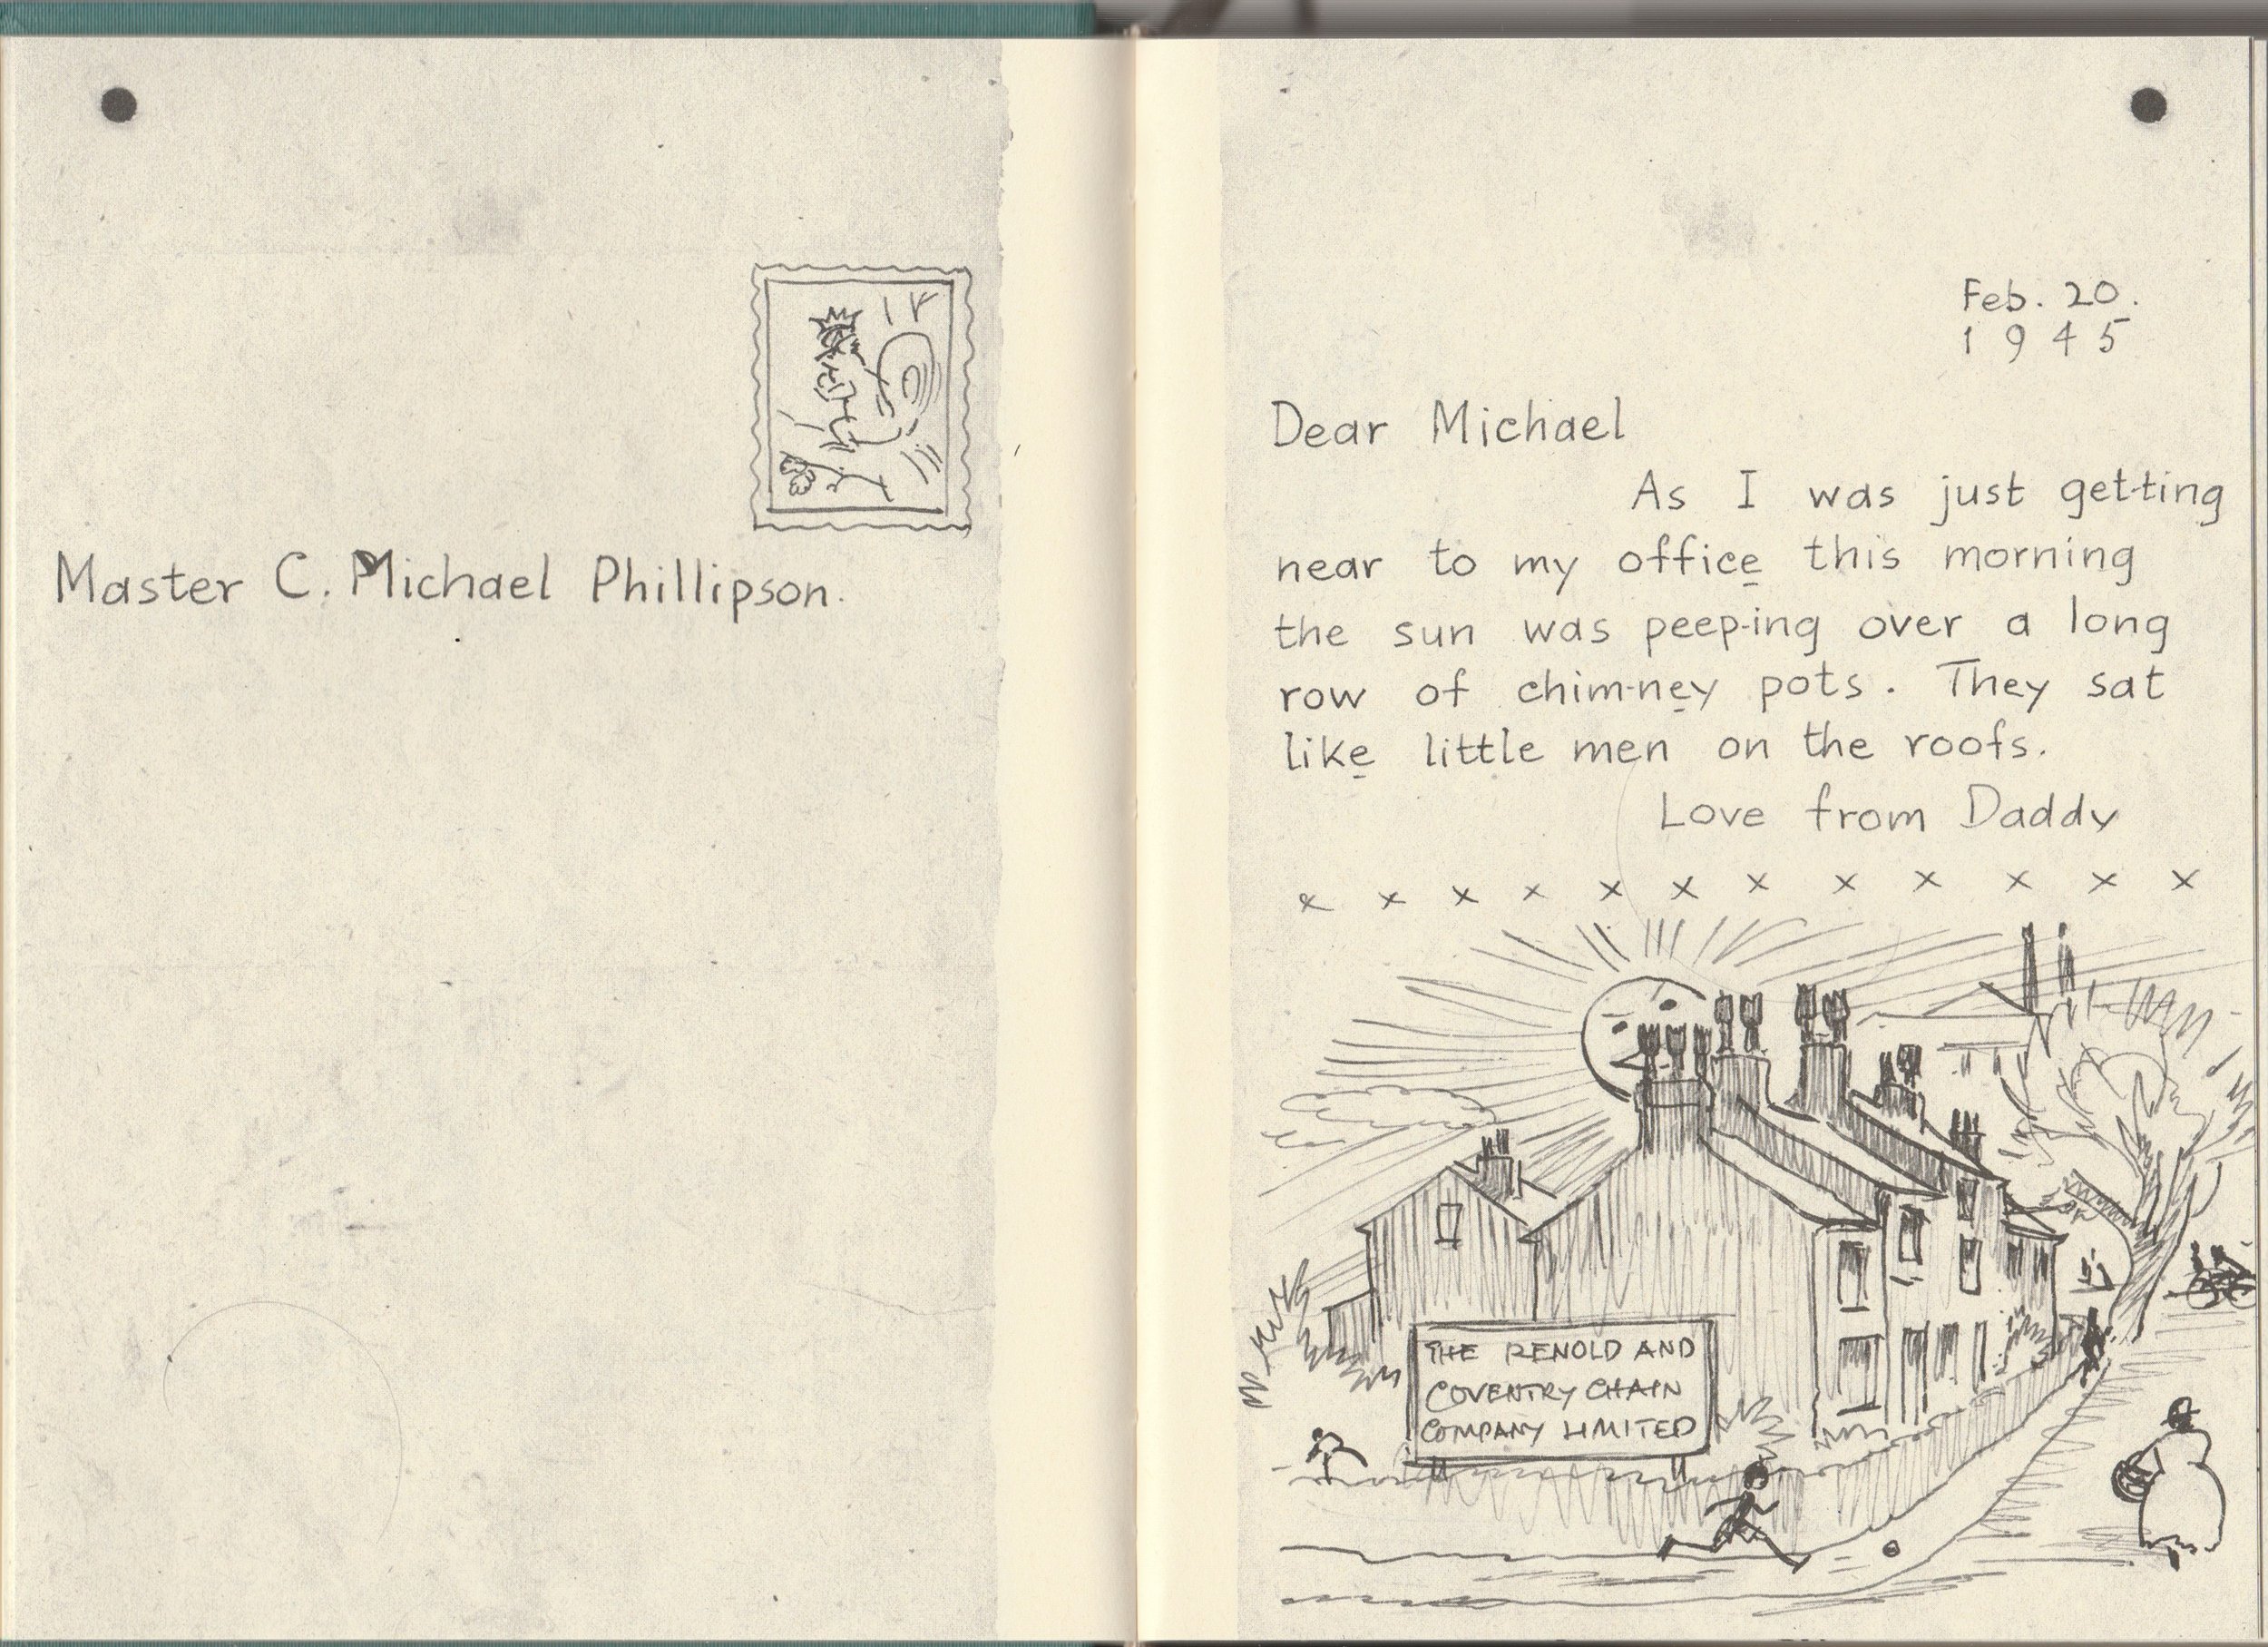 Master C. Michael Phillipson.
Feb. 20.
1945
Dear Michael
As I was just get-ting
near to my office this morning
the sun was peep-ing over a long
row of chim-ney pots. They sat
like little men on the roofs.
Love from Daddy
x x x x x x x x x x x x
THE RENOLD AND
COVENTRY CHAIN
COMPANY LIMITED